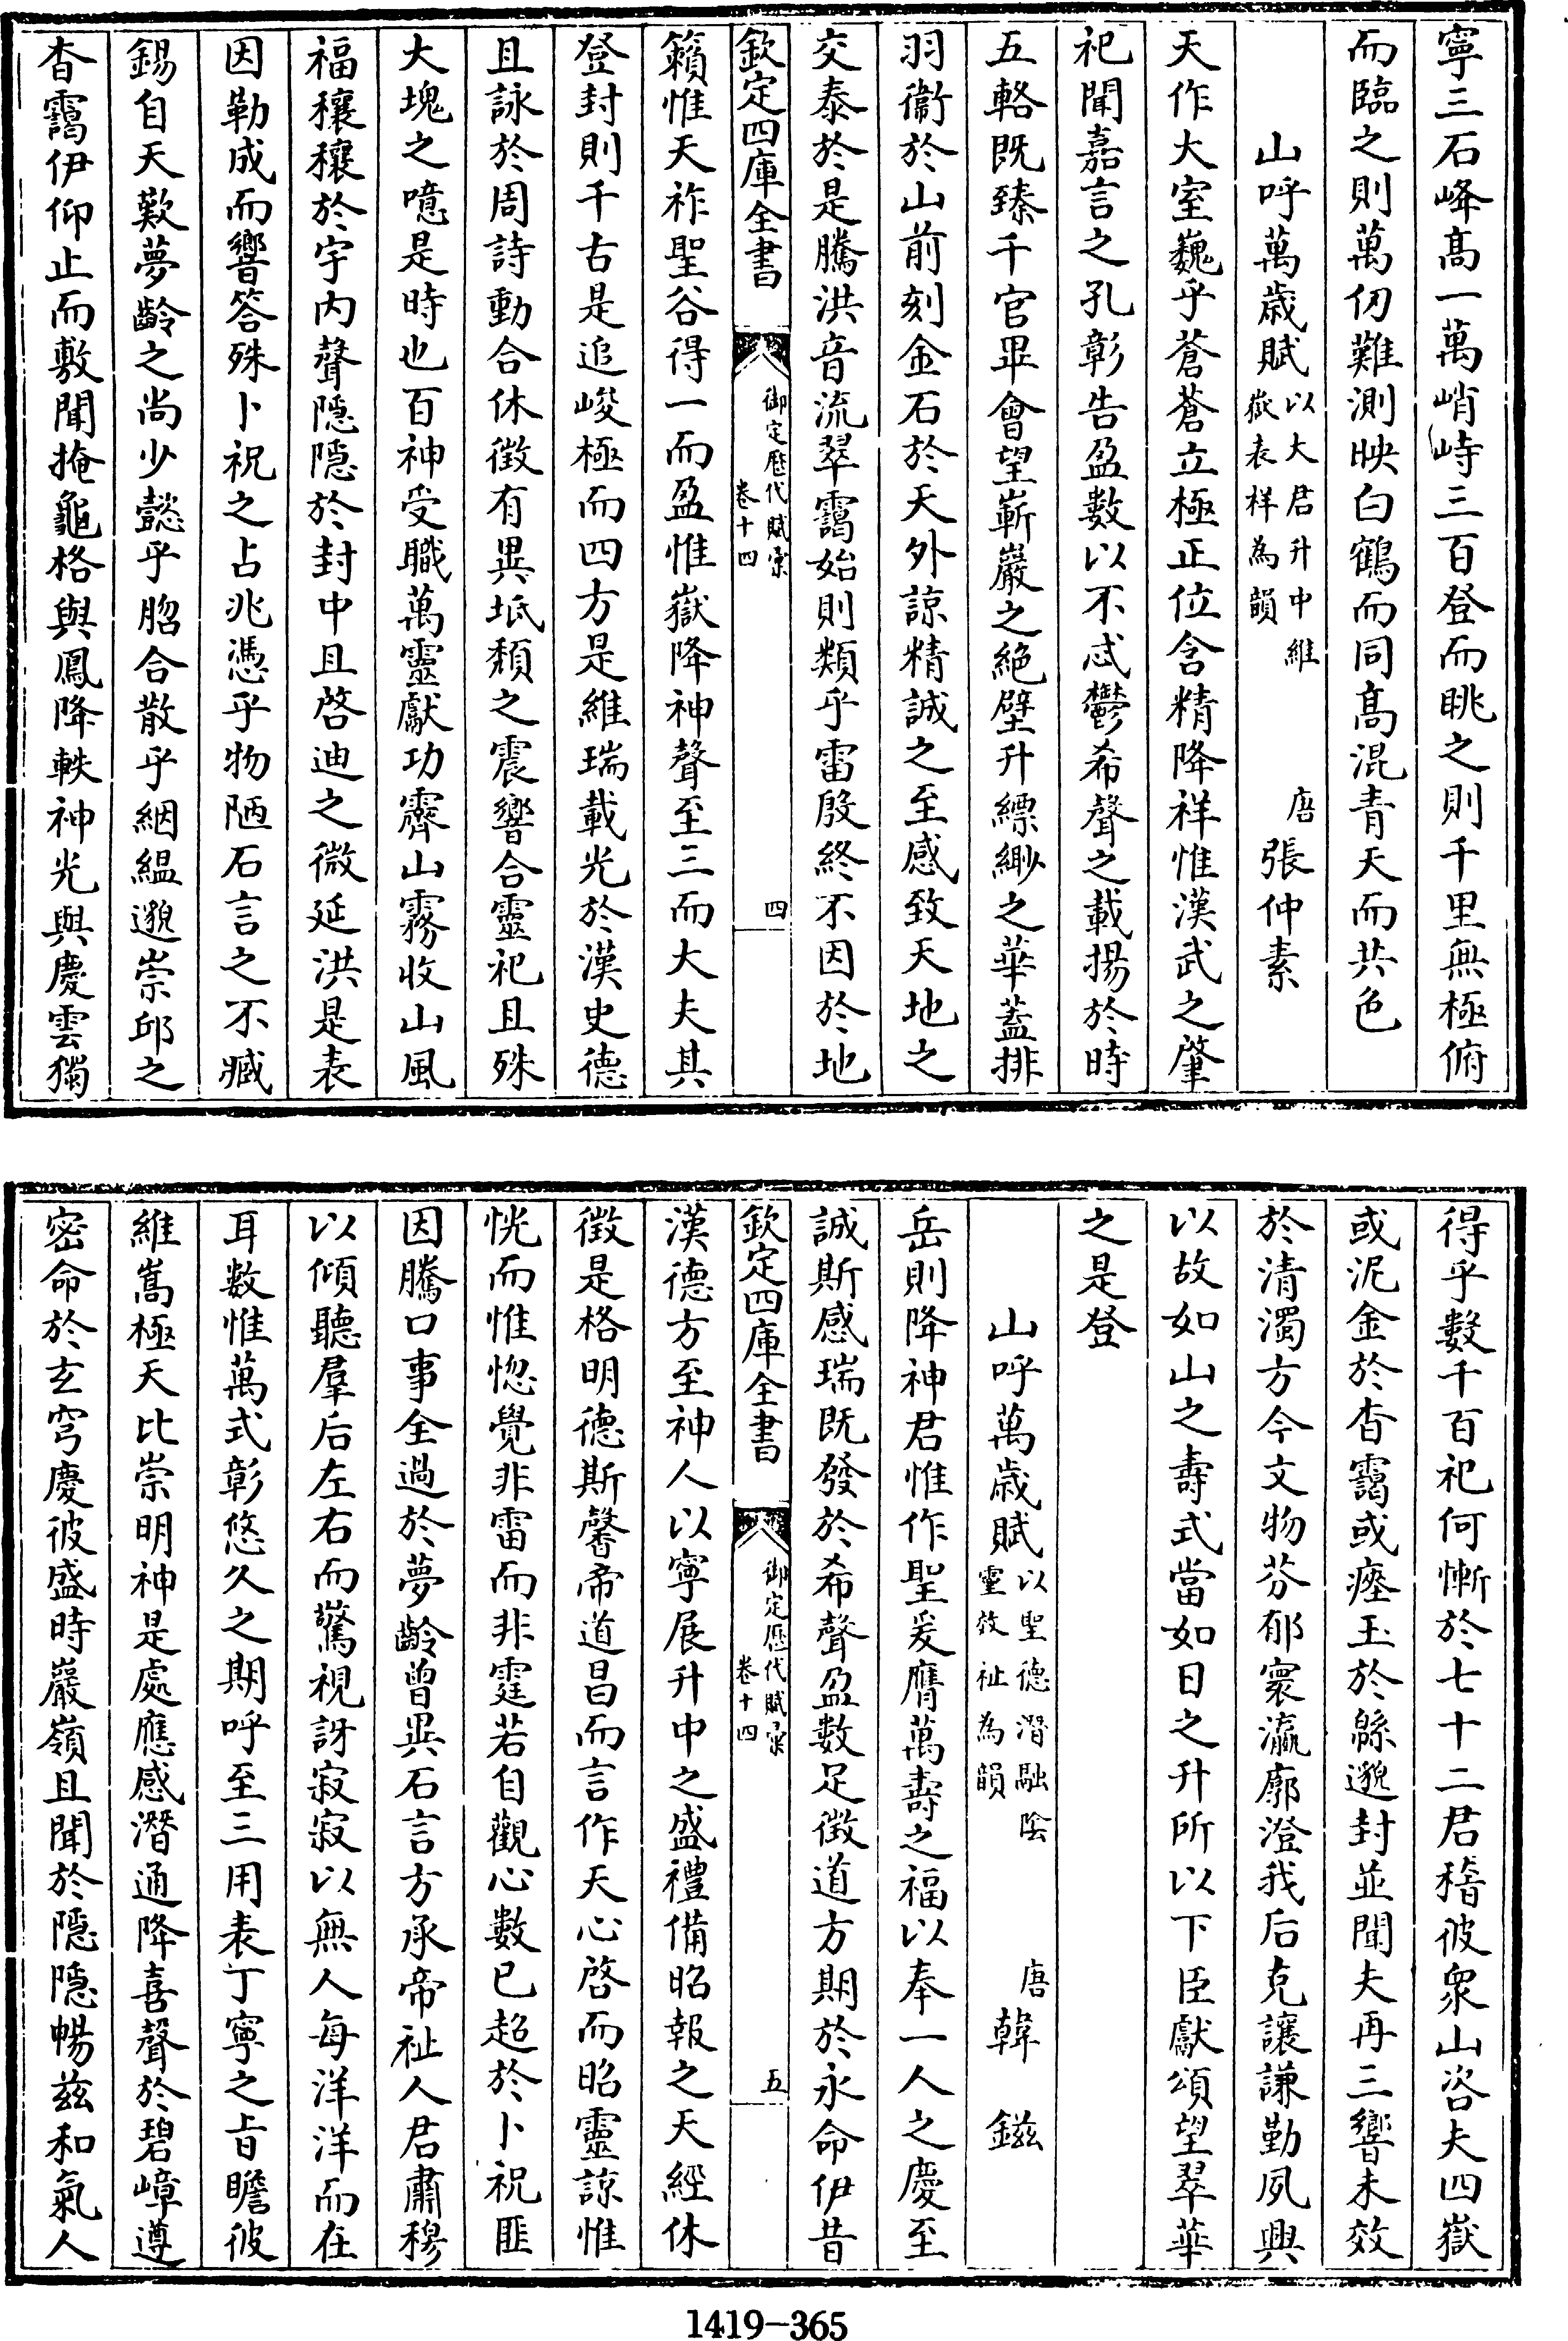 寧三石峰髙一萬峭峙三百登而眺之則千里無極俯
而臨之則萬仞難測映白鶴而同髙混青天而共色
山呼萬歲賦以大君升中維嶽表祥為韻 唐張仲素
天作大室巍乎蒼蒼立極正位含精降祥惟漢武之肇
祀聞嘉言之孔彰告盈數以不忒鬱希聲之載揚於時
五輅既臻千官畢會望嶄巖之絶壁升縹緲之華蓋排
羽衞於山前刻金石於天外諒精誠之至感致天地之
交泰於是騰洪音流翠靄始則類乎雷殷終不因於地
欽定四庫全書 御定歷代賦彙卷十四 四
籟惟天祚聖谷得一而盈惟嶽降神聲至三而大夫其
登封則千古是追峻極而四方是維瑞載光於漢史德
且詠於周詩動合休徵有異坻頽之震響合靈祀且殊
大塊之噫是時也百神受職萬靈獻功霽山霧收山風
福穰穰於宇内聲隠隠於封中且啓迪之微延洪是表
因勒成而響答殊卜祝之占兆憑乎物陋石言之不臧
錫自天歎夢齡之尚少懿乎脗合散乎絪緼邈崇邱之
杳靄伊仰止而敷聞掩龜格與鳳降軼神光與慶雲獨
得乎數千百祀何慚於七十二君稽彼衆山咨夫四嶽
或泥金於杳靄或瘞玉於緜邈封並聞夫再三響未效
於清濁方今文物芬郁寰瀛廓澄我后克讓謙勤夙興
以故如山之壽式當如日之升所以下臣獻頌望翠華
之是登
山呼萬歲賦以聖德潛融陰靈效祉為韻 唐韓鎡
岳則降神君惟作聖爰膺萬壽之福以奉一人之慶至
誠斯感瑞既發於希聲盈數足徴道方期於永命伊昔
欽定四庫全書 御定歷代賦彙卷十四 五
漢德方至神人以寧展升中之盛禮備昭報之天經休
徴是格明德斯馨帝道昌而言作天心啓而昭靈諒惟
恍而惟惚覺非雷而非霆若自觀心數已超於卜祝匪
因騰口事全過於夢齡曾異石言方承帝祉人君肅穆
以傾聽羣后左右而驚視訝寂寂以無人每洋洋而在
耳數惟萬式彰悠久之期呼至三用表丁寧之旨瞻彼
維嵩極天比崇明神是處應感潛通降喜聲於碧嶂遵
密命於玄穹慶彼盛時巖嶺且聞於隠隠暢茲和氣人
1419-365